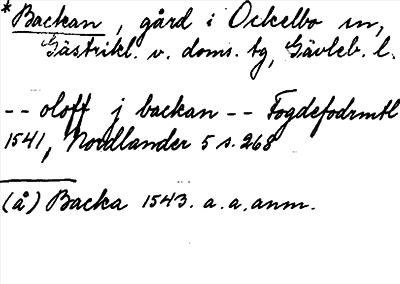 *Backan, gård i Ockelbo sn,
Gästrikl. v. doms. tg, Gävleb. l.
-- oloff j backan -- Fogdefodrmtl
1541, Nordlander 5 s. 268
(å) Backa 1543. a.a. anm.